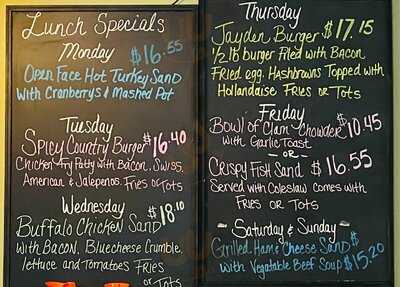 Lunch Specials
Monday $16.55
Open Face Hot Turkey Sand
with Cranberrys & Mashed Pot
Tuesday
Spicy Country Burger $16.40
Chicken Fry Patty with Bacon, Swiss,
American & Jalepenos. Fries or Tots
Wednesday
Buffalo Chicken Sand $18.10
with Bacon, Bluecheese Crumble,
lettuce and Tomatoes Fries
or Tots
Thursday
Jayden Burger $17.15
1/2 lb burger Piled with Bacon
Fried egg. Hashbrowns Topped with
Hollandaise Fries or Tots
Friday
Bowl of Clam Chowder $10.45
with Garlic Toast
- OR -
Crispy Fish Sand $16.55
Served with Coleslaw comes with
Fries or Tots
- Saturday & Sunday -
Grilled Ham & Cheese Sand $15.20
with Vegatable Beef Soup